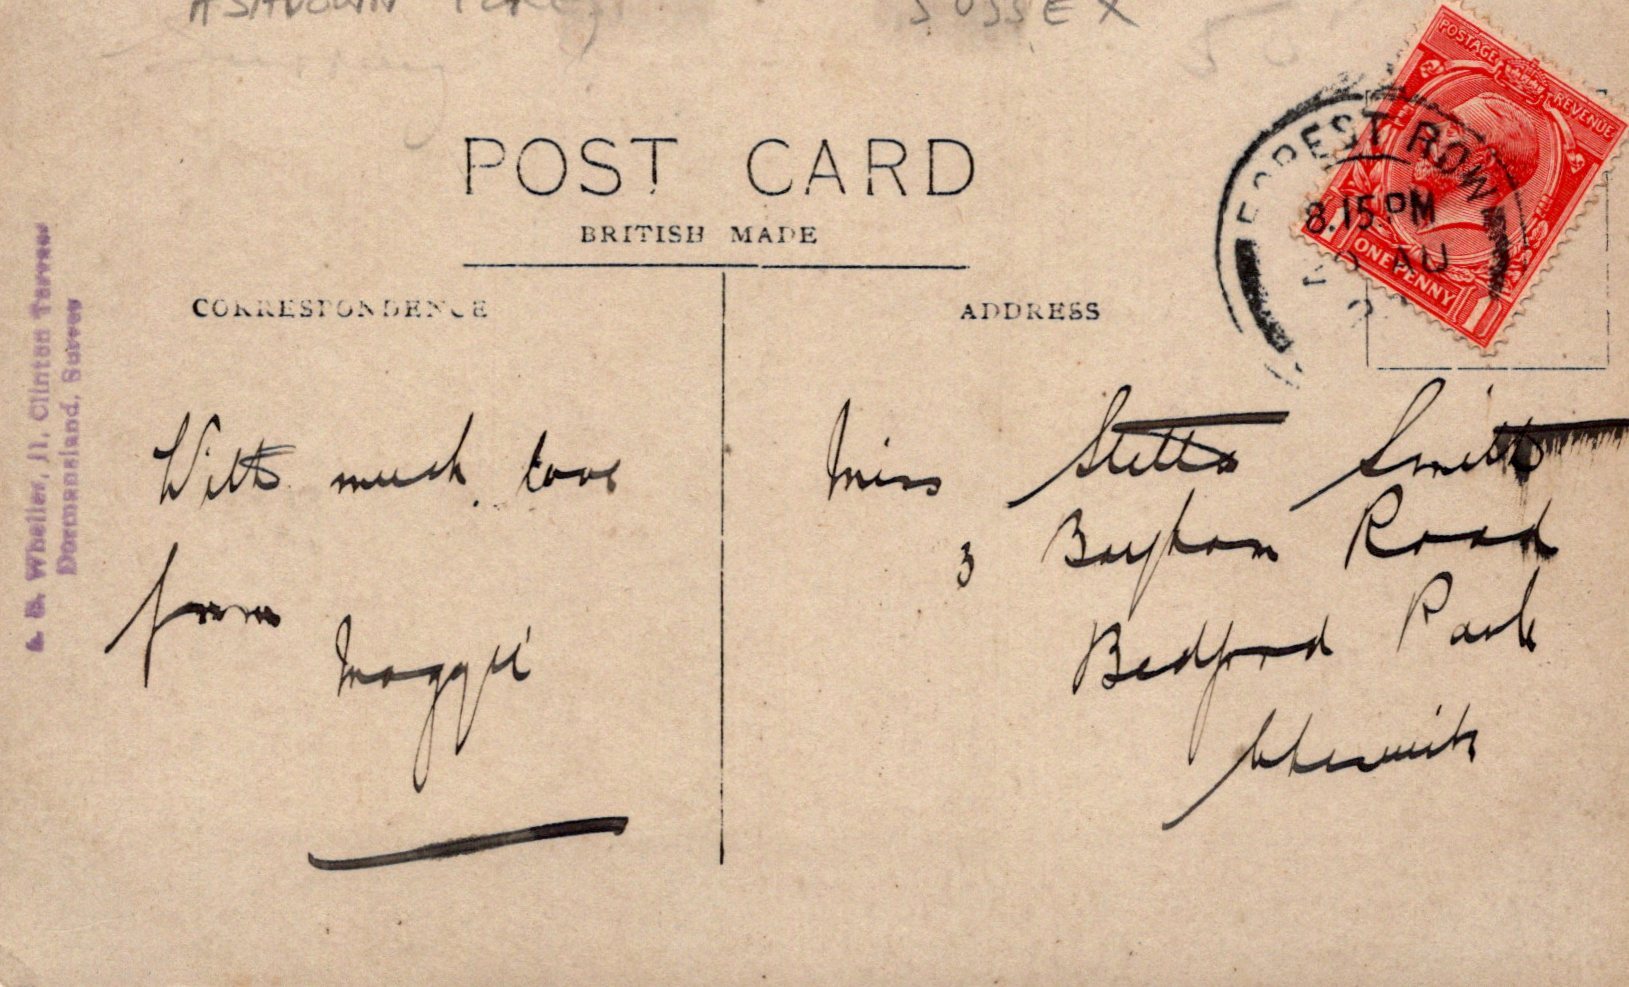 ASHDOWN FOREST SUSSEX
50
POST CARD
BRITISH MADE
CORRESPONDENCE
ADDRESS
POSTAGE REVENUE
ONE PENNY
1
FOREST ROW
8.15 PM
AU
A. B. Wheller, 11, Clinton Terrace
Dormansland, Surrey
With much love
from
Maggie
Miss Stella Smith
3 Bayham Road
Bedford Park
Chiswick